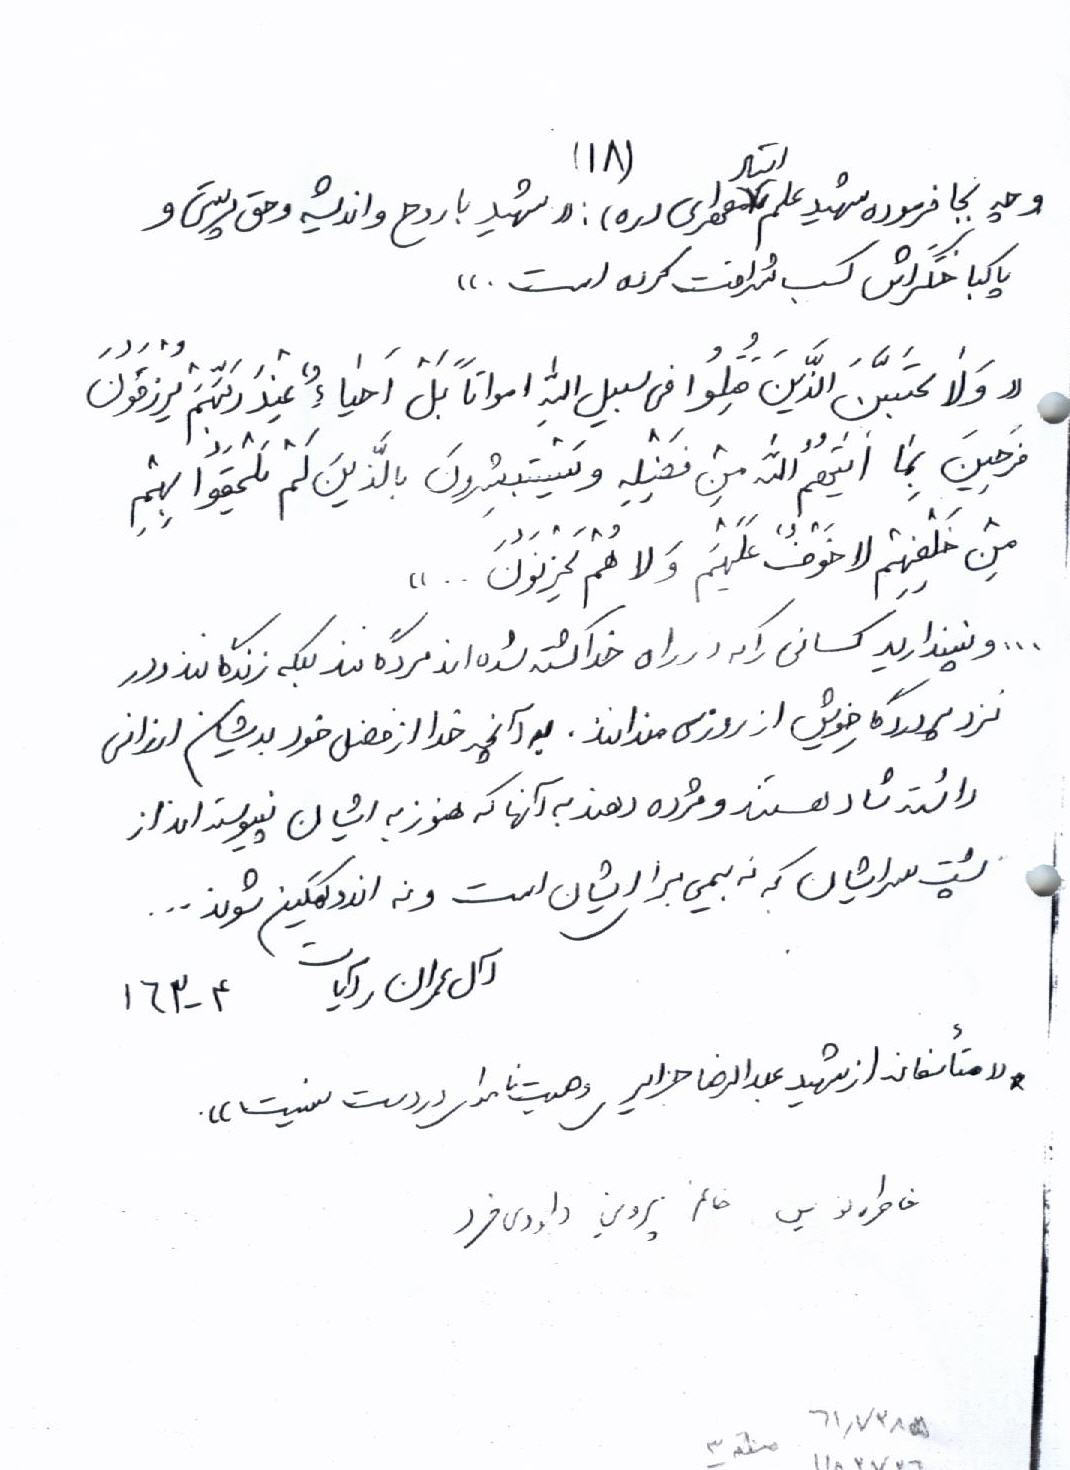 (١٨)
استاد
و چه بجا فرموده شهید علم مطهری (ره): «شهید با روح و اندیشه و حق پرستی و
پاکباختگی‌اش کسب شرافت کرده است.»
«وَلَا تَحسَبَنَّ الَّذَینَ قُتِلُوا فی سبیل اللهِ امواتاً بَلْ اَحیٰاءٌ عِنْدَ رَبِّهِمْ یُرْزَقُونَ
فَرِحِینَ بِمٰا اٰتیٰهُمُ اللهُ مِنْ فَضْلِهِ وَ یَسْتَبشِرونَ بالَّذینَ لَمْ یَلْحَقُوا بِهِمِ
مِنْ خَلْفِهِمْ لا خَوْفٌ عَلَیْهِمْ وَ لا هُمْ یَحْزِنُونَ ...»
... و نپندارید کسانی را که در راه خدا کشته شده اند مردگانند بلکه زندگانند و در
نزد پروردگار خویش از روزی مندانند. به آنچه خدا از فضل خود بدیشان ارزانی
داشته شاد هستند و مژده دهند به آنها که هنوز به ایشان نپیوسته اند از
پشت سر ایشان که نه بیمی برای ایشان است و نه اندوهگین شوند...
آل عمران، آیات ۴-١٦٣
* «متأسفانه از شهید عبدالرضا جزایری وصیت نامه‌ای در دست نیست».
خاطره نویس خانم پروین داودی فرد
٦١٫٧٣٨۵
منطقه ٣